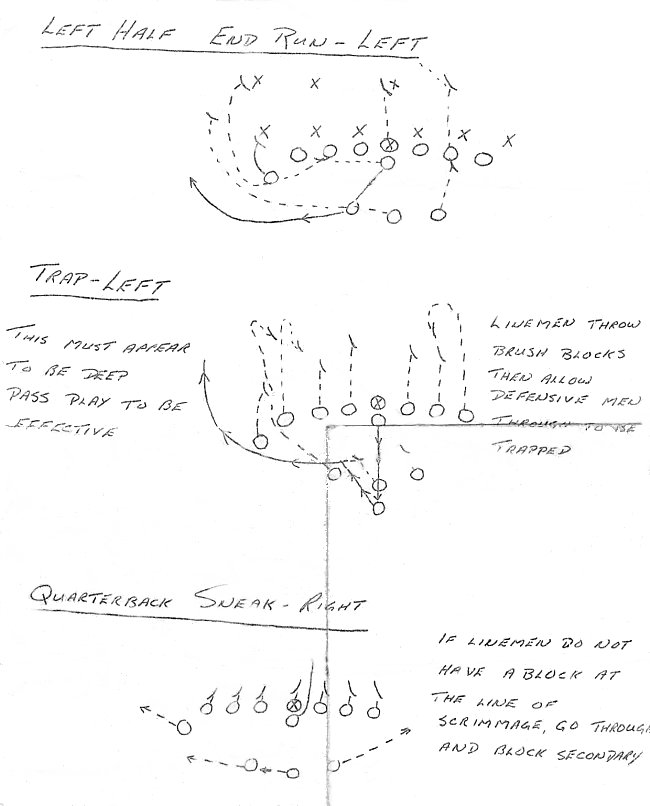 LEFT HALF END RUN - LEFT
TRAP - LEFT
THIS MUST APPEAR
TO BE DEEP
PASS PLAY TO BE
EFFECTIVE
LINEMEN THROW
BRUSH BLOCKS
THEN ALLOW
DEFENSIVE MEN
THROUGH TO BE
TRAPPED
QUARTERBACK SNEAK - RIGHT
IF LINEMEN DO NOT
HAVE A BLOCK AT
THE LINE OF
SCRIMMAGE, GO THROUGH
AND BLOCK SECONDARY